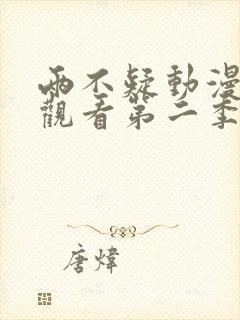 兩不疑動漫
觀看第二季
唐煒